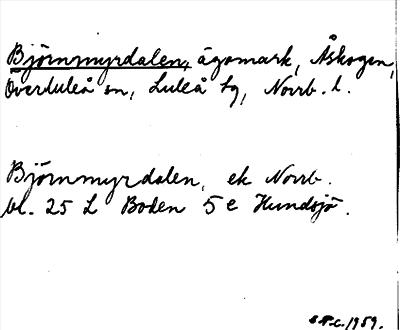 Björnmyrdalen, ägomark, Åskogen,
Överluleå sn, Luleå tg, Norrb. l.
Björnmyrdalen, ek Norrb.
bl. 25 L Boden 5 e Hundsjö.
1959.